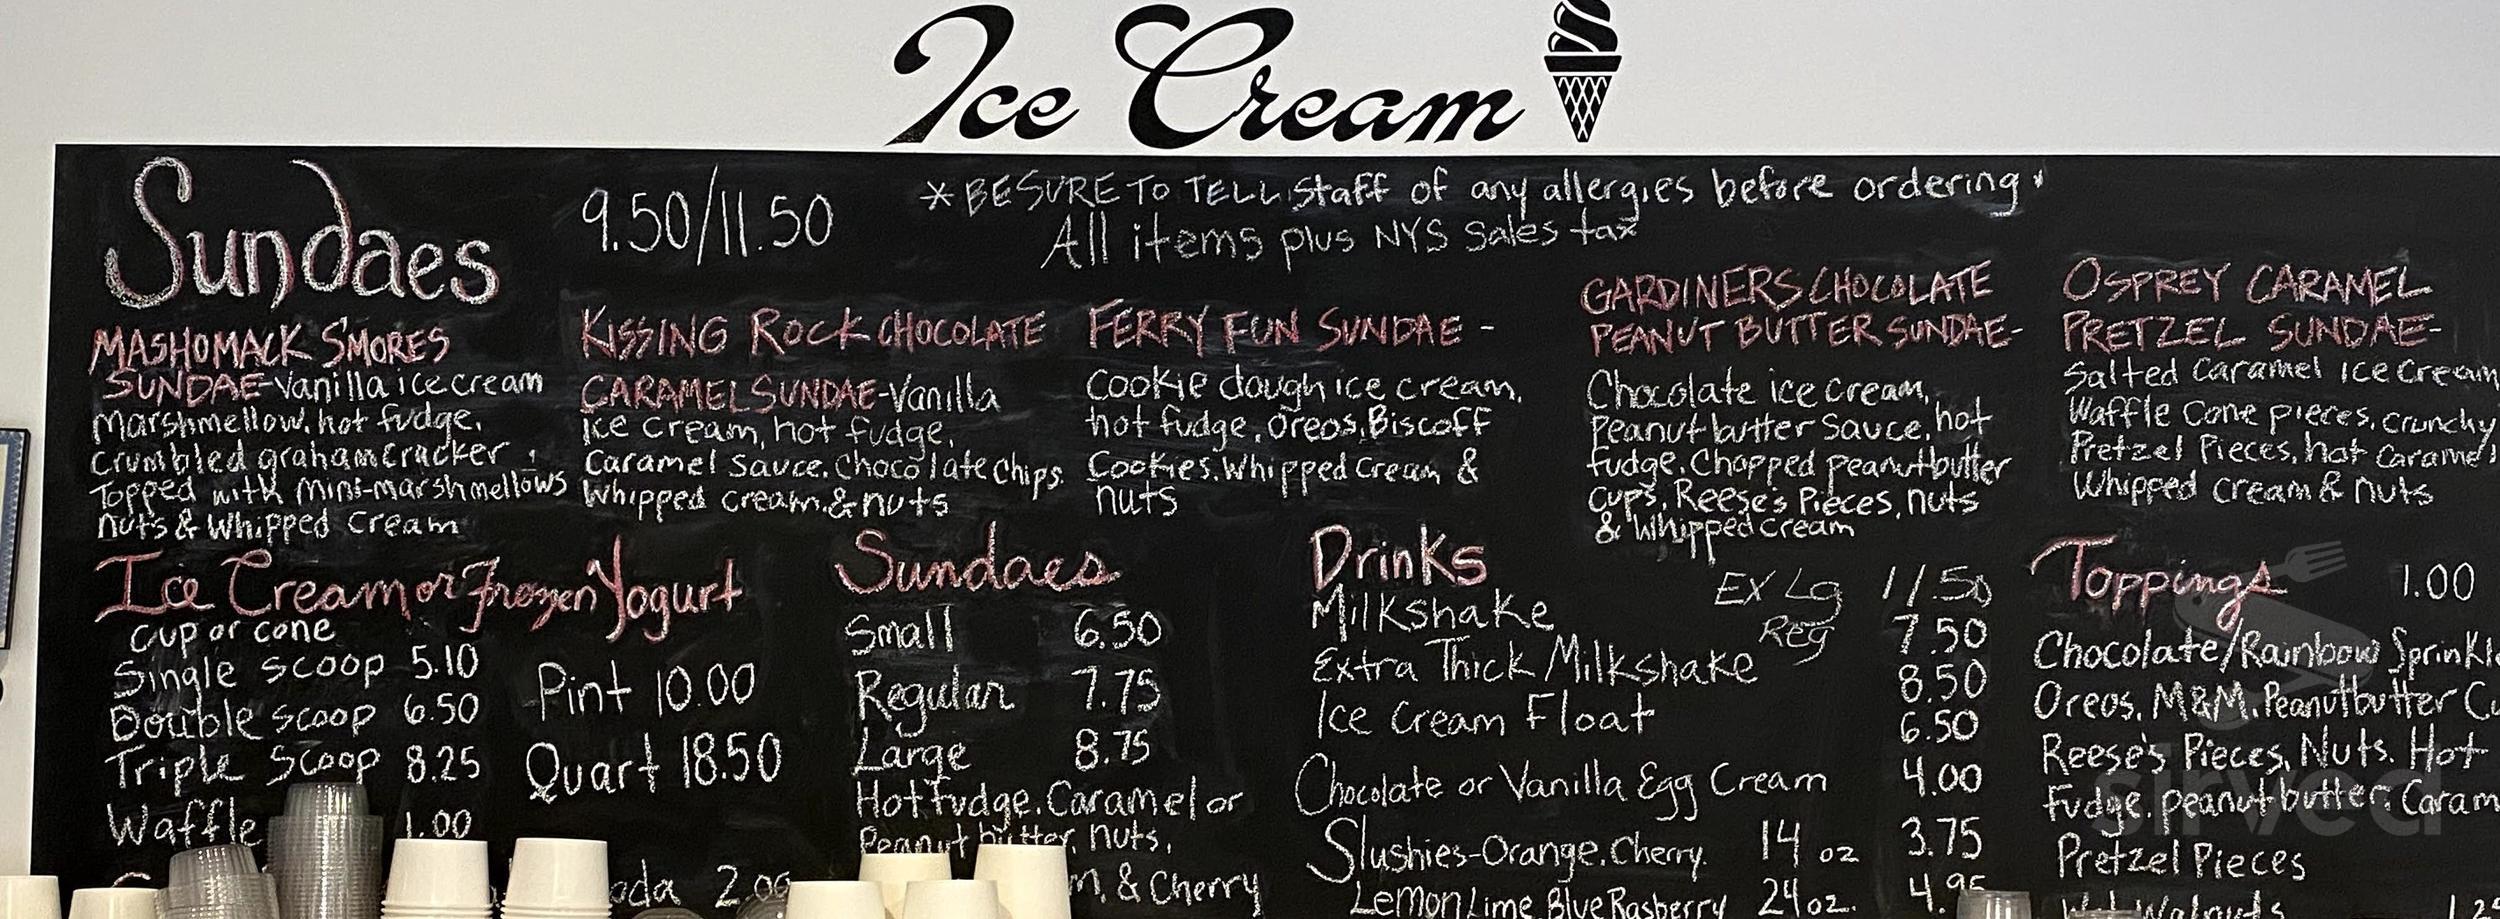 Ice Cream
Sundaes 9.50/11.50
* BE SURE TO TELL Staff of any allergies before ordering.
All items plus NYS Sales tax
MASHOMACK SMORES
SUNDAE-Vanilla ice cream
Marshmellow, hot fudge,
Crumbled graham cracker,
Topped with Mini-marshmellows
nuts & Whipped Cream
KISSING ROCK CHOCOLATE
CARAMEL SUNDAE-Vanilla
Ice Cream, hot fudge,
Caramel Sauce, Chocolate Chips.
Whipped cream & nuts
FERRY FUN SUNDAE -
Cookie dough ice cream,
hot fudge, Oreos, Biscoff
Cookies, Whipped Cream &
nuts
GARDINERS CHOCOLATE
PEANUT BUTTER SUNDAE-
Chocolate ice cream,
Peanut butter Sauce, hot
fudge, Chopped peanutbutter
cups, Reese's Pieces, nuts
& Whipped cream
OSPREY CARAMEL
PRETZEL SUNDAE-
Salted Caramel Ice Cream
Waffle Cone pieces, crunchy
Pretzel Pieces, hot Caramel
Whipped cream & nuts
Ice Cream or Frozen Yogurt
Cup or cone
Single Scoop 5.10
Double Scoop 6.50
Triple Scoop 8.25
Waffle 1.00
Pint 10.00
Quart 18.50
Sundaes
Small 6.50
Regular 7.75
Large 8.75
Hot Fudge, Caramel or
Peanut butter, nuts,
& Cherry
Drinks
EX Lg 11.50
Milkshake Reg 7.50
Extra Thick Milkshake 8.50
Ice Cream Float 6.50
Chocolate or Vanilla Egg Cream 4.00
Slushies-Orange, Cherry, 14 oz 3.75
Lemon Lime, Blue Rasberry 24 oz. 4.95
Toppings 1.00
Chocolate/Rainbow
Oreos, M&M, Peanutbutter
Reese's Pieces, Nuts, Hot
Fudge, peanutbutter,
Pretzel Pieces
sirved